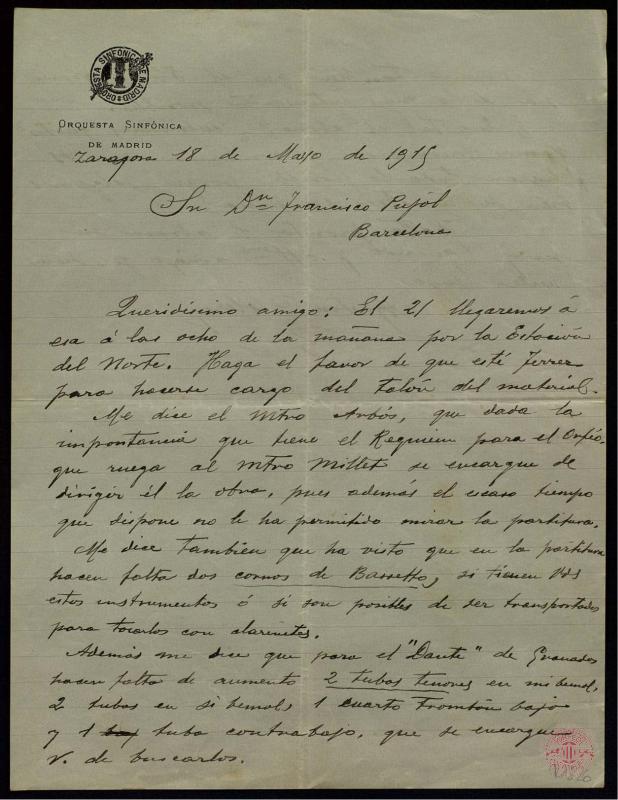 ORQUESTA SINFONICA DE MADRID
ORQUESTA SINFÓNICA
DE MADRID
Zaragoza 18 de Mayo de 1915
Sr. Dn Francisco Pujol
Barcelona
Queridísimo amigo: El 21 llegaremos á
esa á las ocho de la mañana por la Estación
del Norte. Haga el favor de que esté Ferrer
para hacerse cargo del talón del material.
Me dice el Mtro Arbós, que dada la
importancia que tiene el Requiem para el Orfeó,
que ruega al Mtro Millet se encargue de
dirigir él la obra, pues además el escaso tiempo
que dispone no le ha permitido mirar la partitura.
Me dice también que ha visto que en la partitura
hacen falta dos cornos de Bassetto, si tienen Vds
estos instrumentos ó si son posibles de ser transportados
para tocarlos con clarinetes.
Además me dice que para el "Dante" de Granados
hacen falta de aumento 2 tubas tenores en mi bemol,
2 tubas en si bemol, 1 cuarto Trombón bajo
y 1 tuba contrabajo, que se encargue
V. de buscarlos.